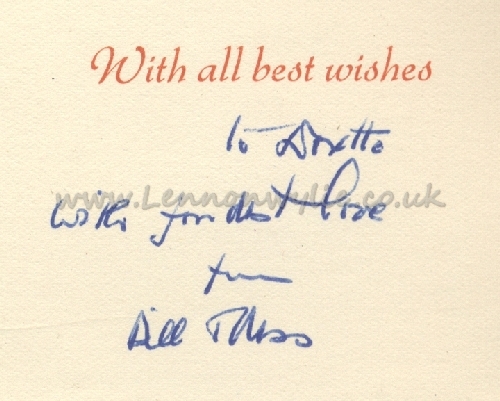 With all best wishes
to
www.Lennonwylie.co.uk
with fondest love
from
Bill